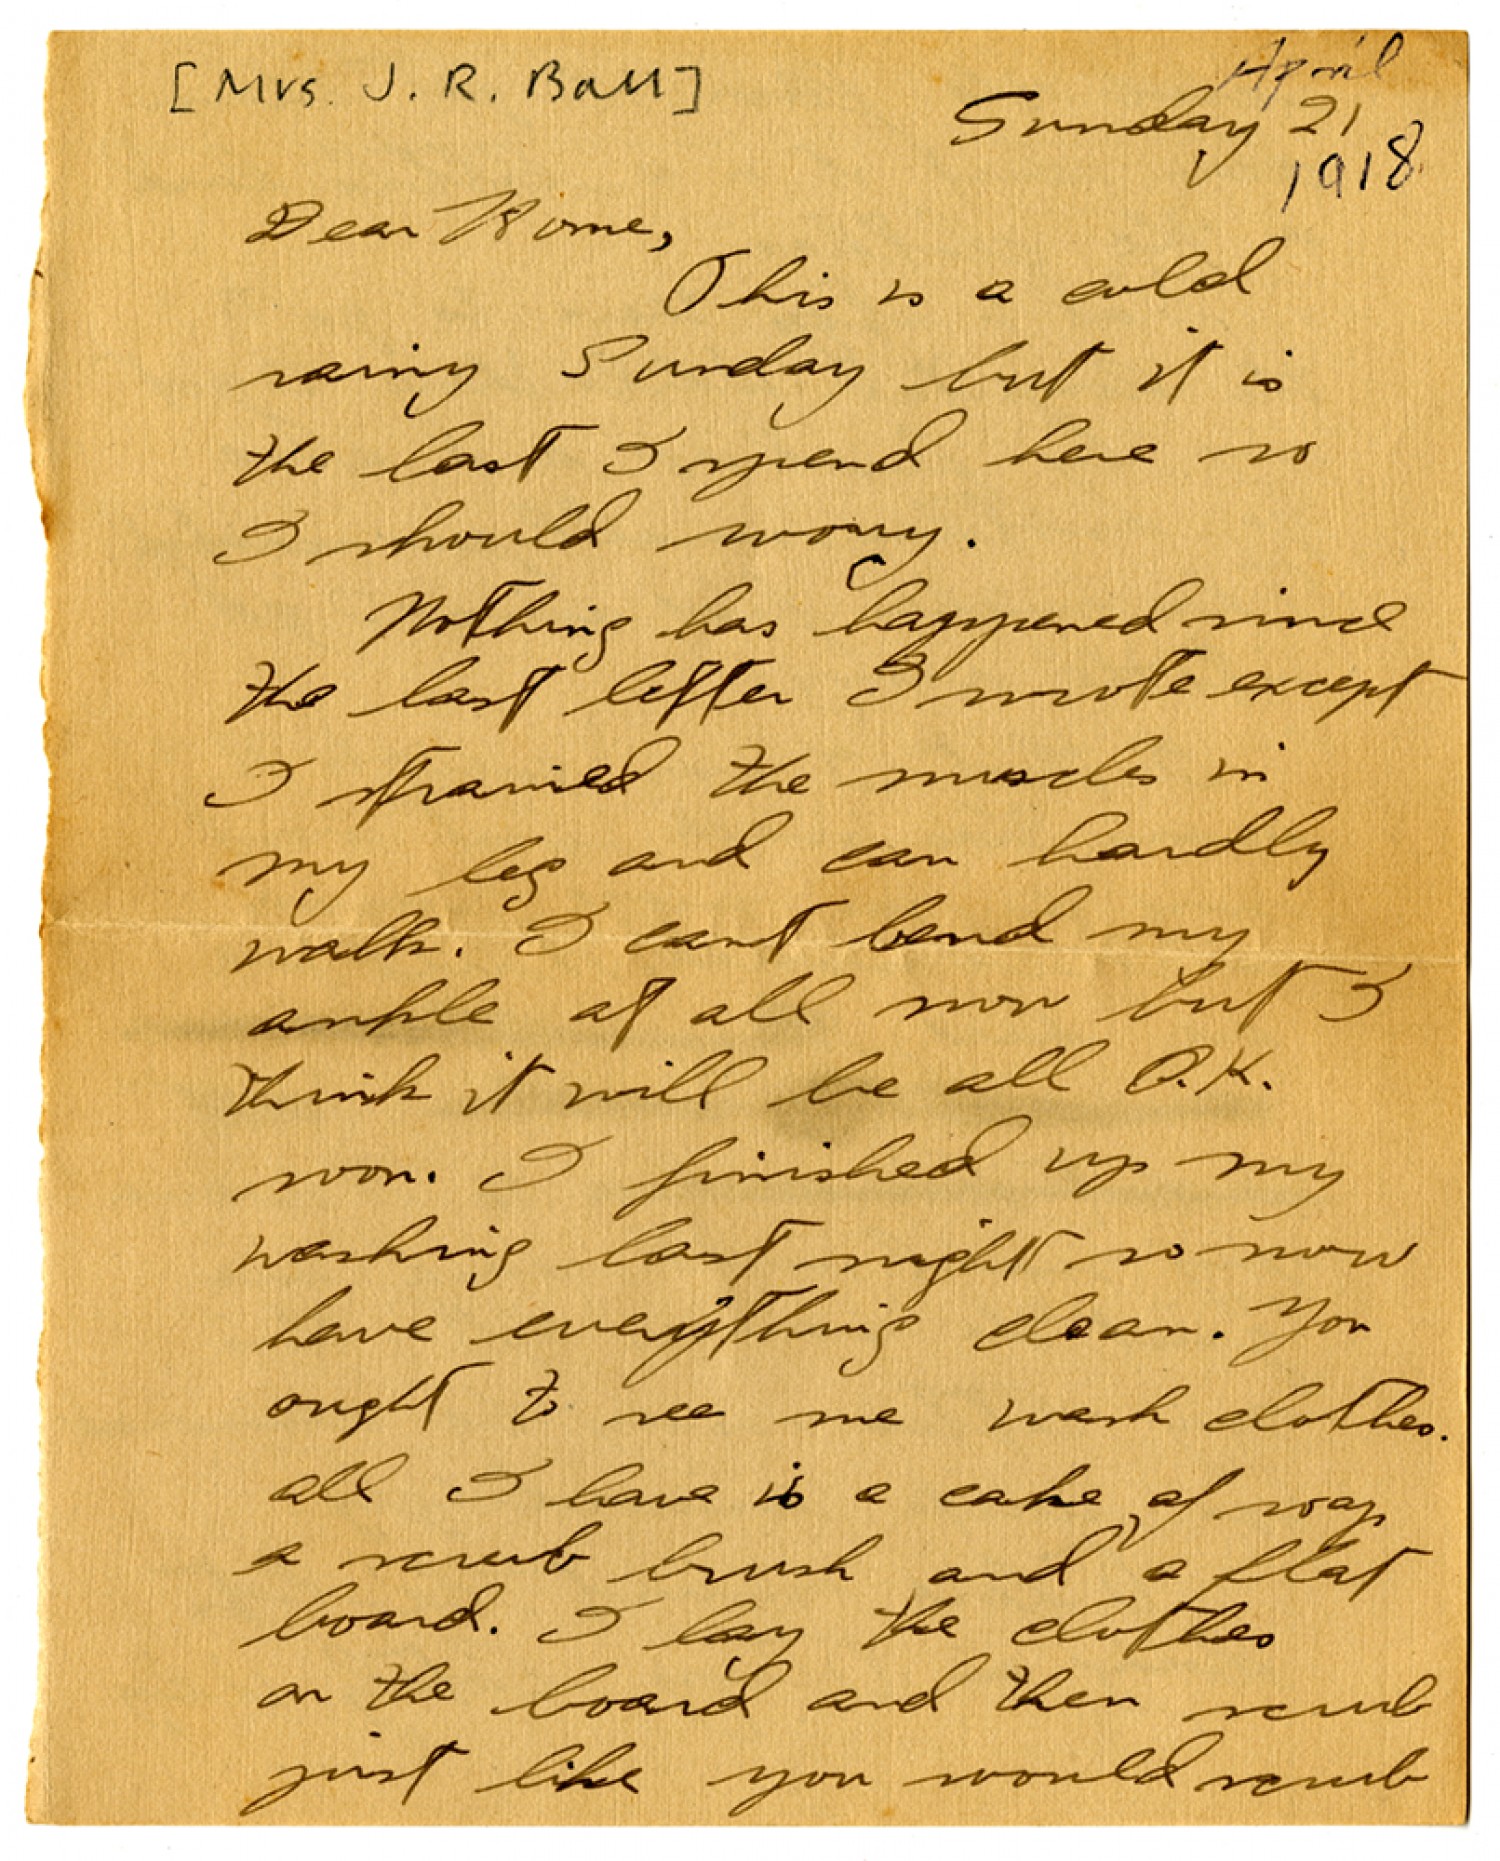 [Mrs. J. R. Ball]
April
Sunday 21
1918
Dear Home,
This is a cold
rainy Sunday but it is
the last I spend here so
I should worry.
Nothing has happened since
the last letter I wrote except
I strained the muscles in
my leg and can hardly
walk. I cant bend my
ankle at all now but I
think it will be all O.K.
soon. I finished up my
washing last night so now
have everything clean. You
ought to see me wash clothes.
all I have is a cake, of soap
a scrub brush and a flat
board. I lay the clothes
on the board and then scrub
just like you would scrub